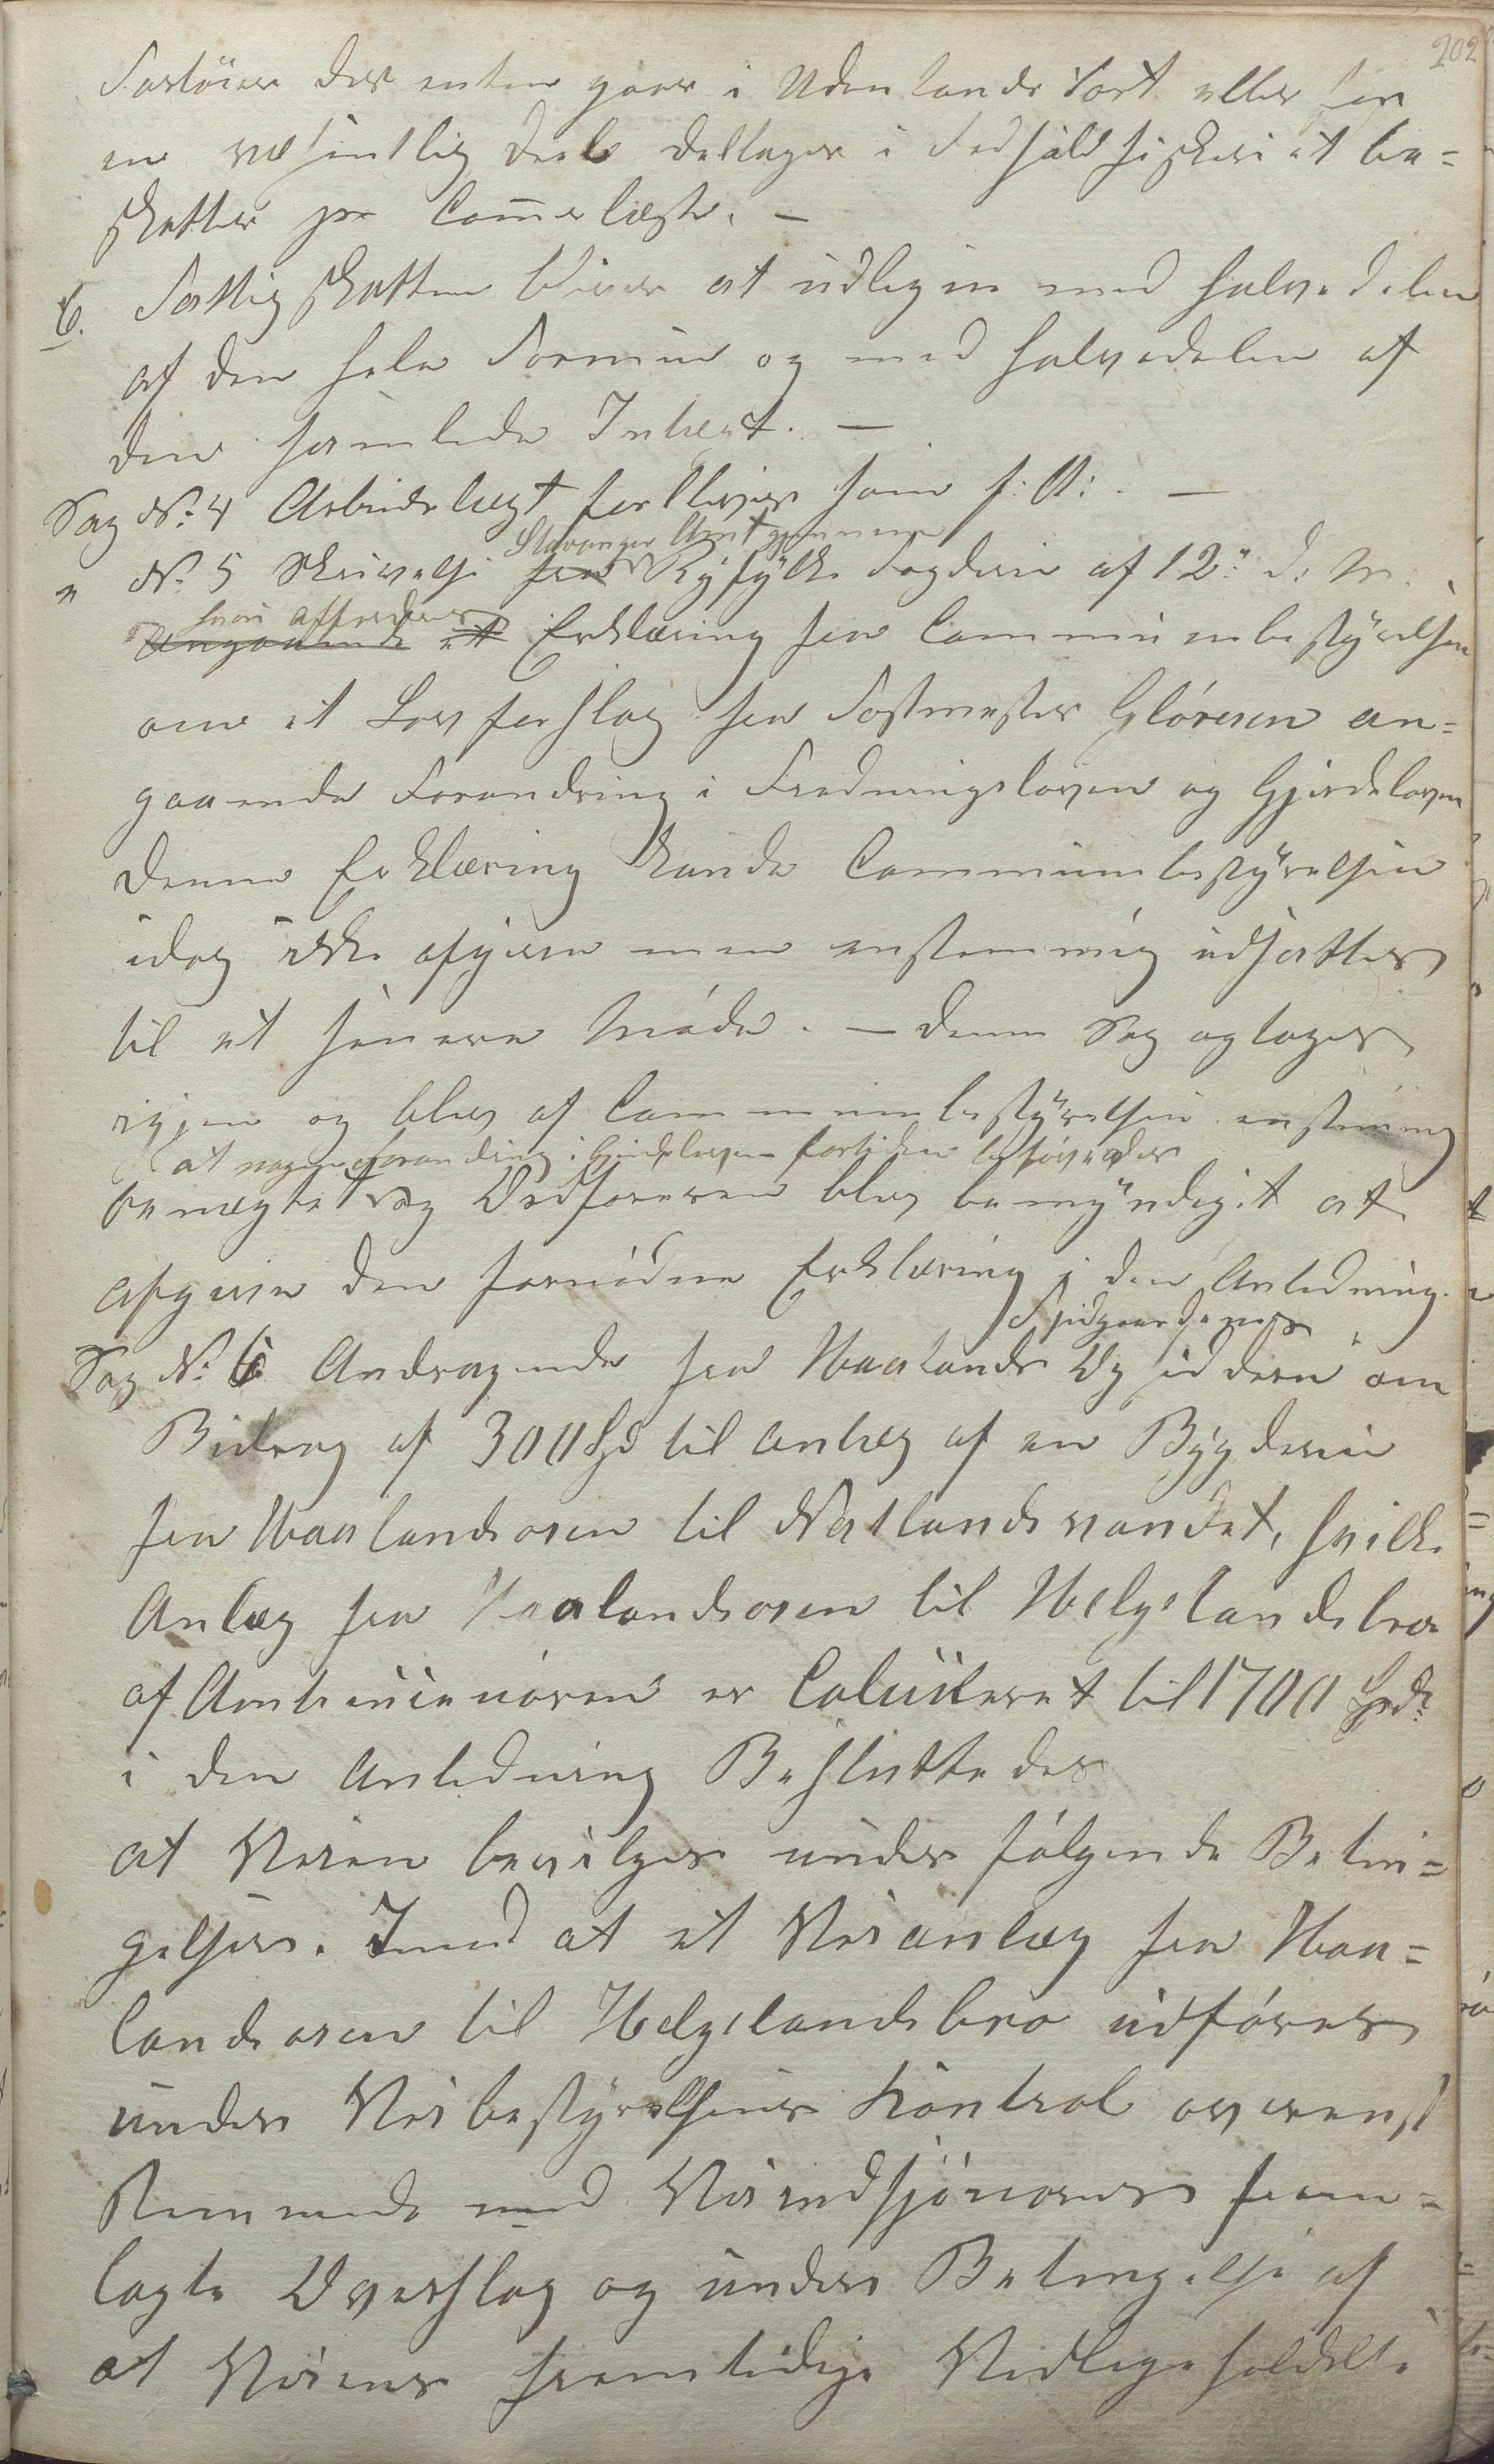 202
Fartøier der enten gaar i Udenlands Fart eller for
en væsentlig Deel deltager i Fedsildfiskeriet be=
skattes pr Comerlæst. —
6. Fattigskatten bliver at udligne med Halvedelen
af den hele Formue og med Halvedelen af
den samlede Indtægt. —
Sag No. 4 Arbeidslægt forbliver som f: A: . —
Stavanger Amt gjennem
" No. 5 Skrivelse fra Ryfylke Fogderie af 12te d. M.
hvori affordres
Angaaende et Erklæring fra Communebestyrelsen
om et Lovforslag fra Postmester Gløersen an=
gaaende Forandring i Fredningsloven og Gjerdeloven
Denne Erklæring kunde Communebestyrelsen
idag ikke afgive men enstemmig udsattes
til et senere Møde. — Denne Sag optages
igjen og blev af Communebestyrelsen enstemmig
at nogen Forandring i Gjerdeloven fortiden behøvedes
benægtet og Ordføreren blev bemyndiget at
afgive den fornødne Erklæring i den Anledning.
Sag No. 6 Andragende fra Haalands Opsiddere om
Bidrag af 300 Spd til Anlæg af en Bygdevei
fra Haalandsosen til Natlandsvandet, hvilke
Anlæg fra Haalandsosen til Helgelandsbro
af Amtsingeniøren er Calculeret til 1700 Spd.
i den Anledning Besluttedes
at Veien bevilges under følgende Betin=
gelser. Imod at et Veianlæg fra Haa=
landsosen til Helgelandsbro udføres
under Veibestyrelsens Kontrol overenst
kemmende med Veiindsjøniørens frem=
lagte Overslag og under Betingelse af
at Veiens fremtidige Vedligeholdelse